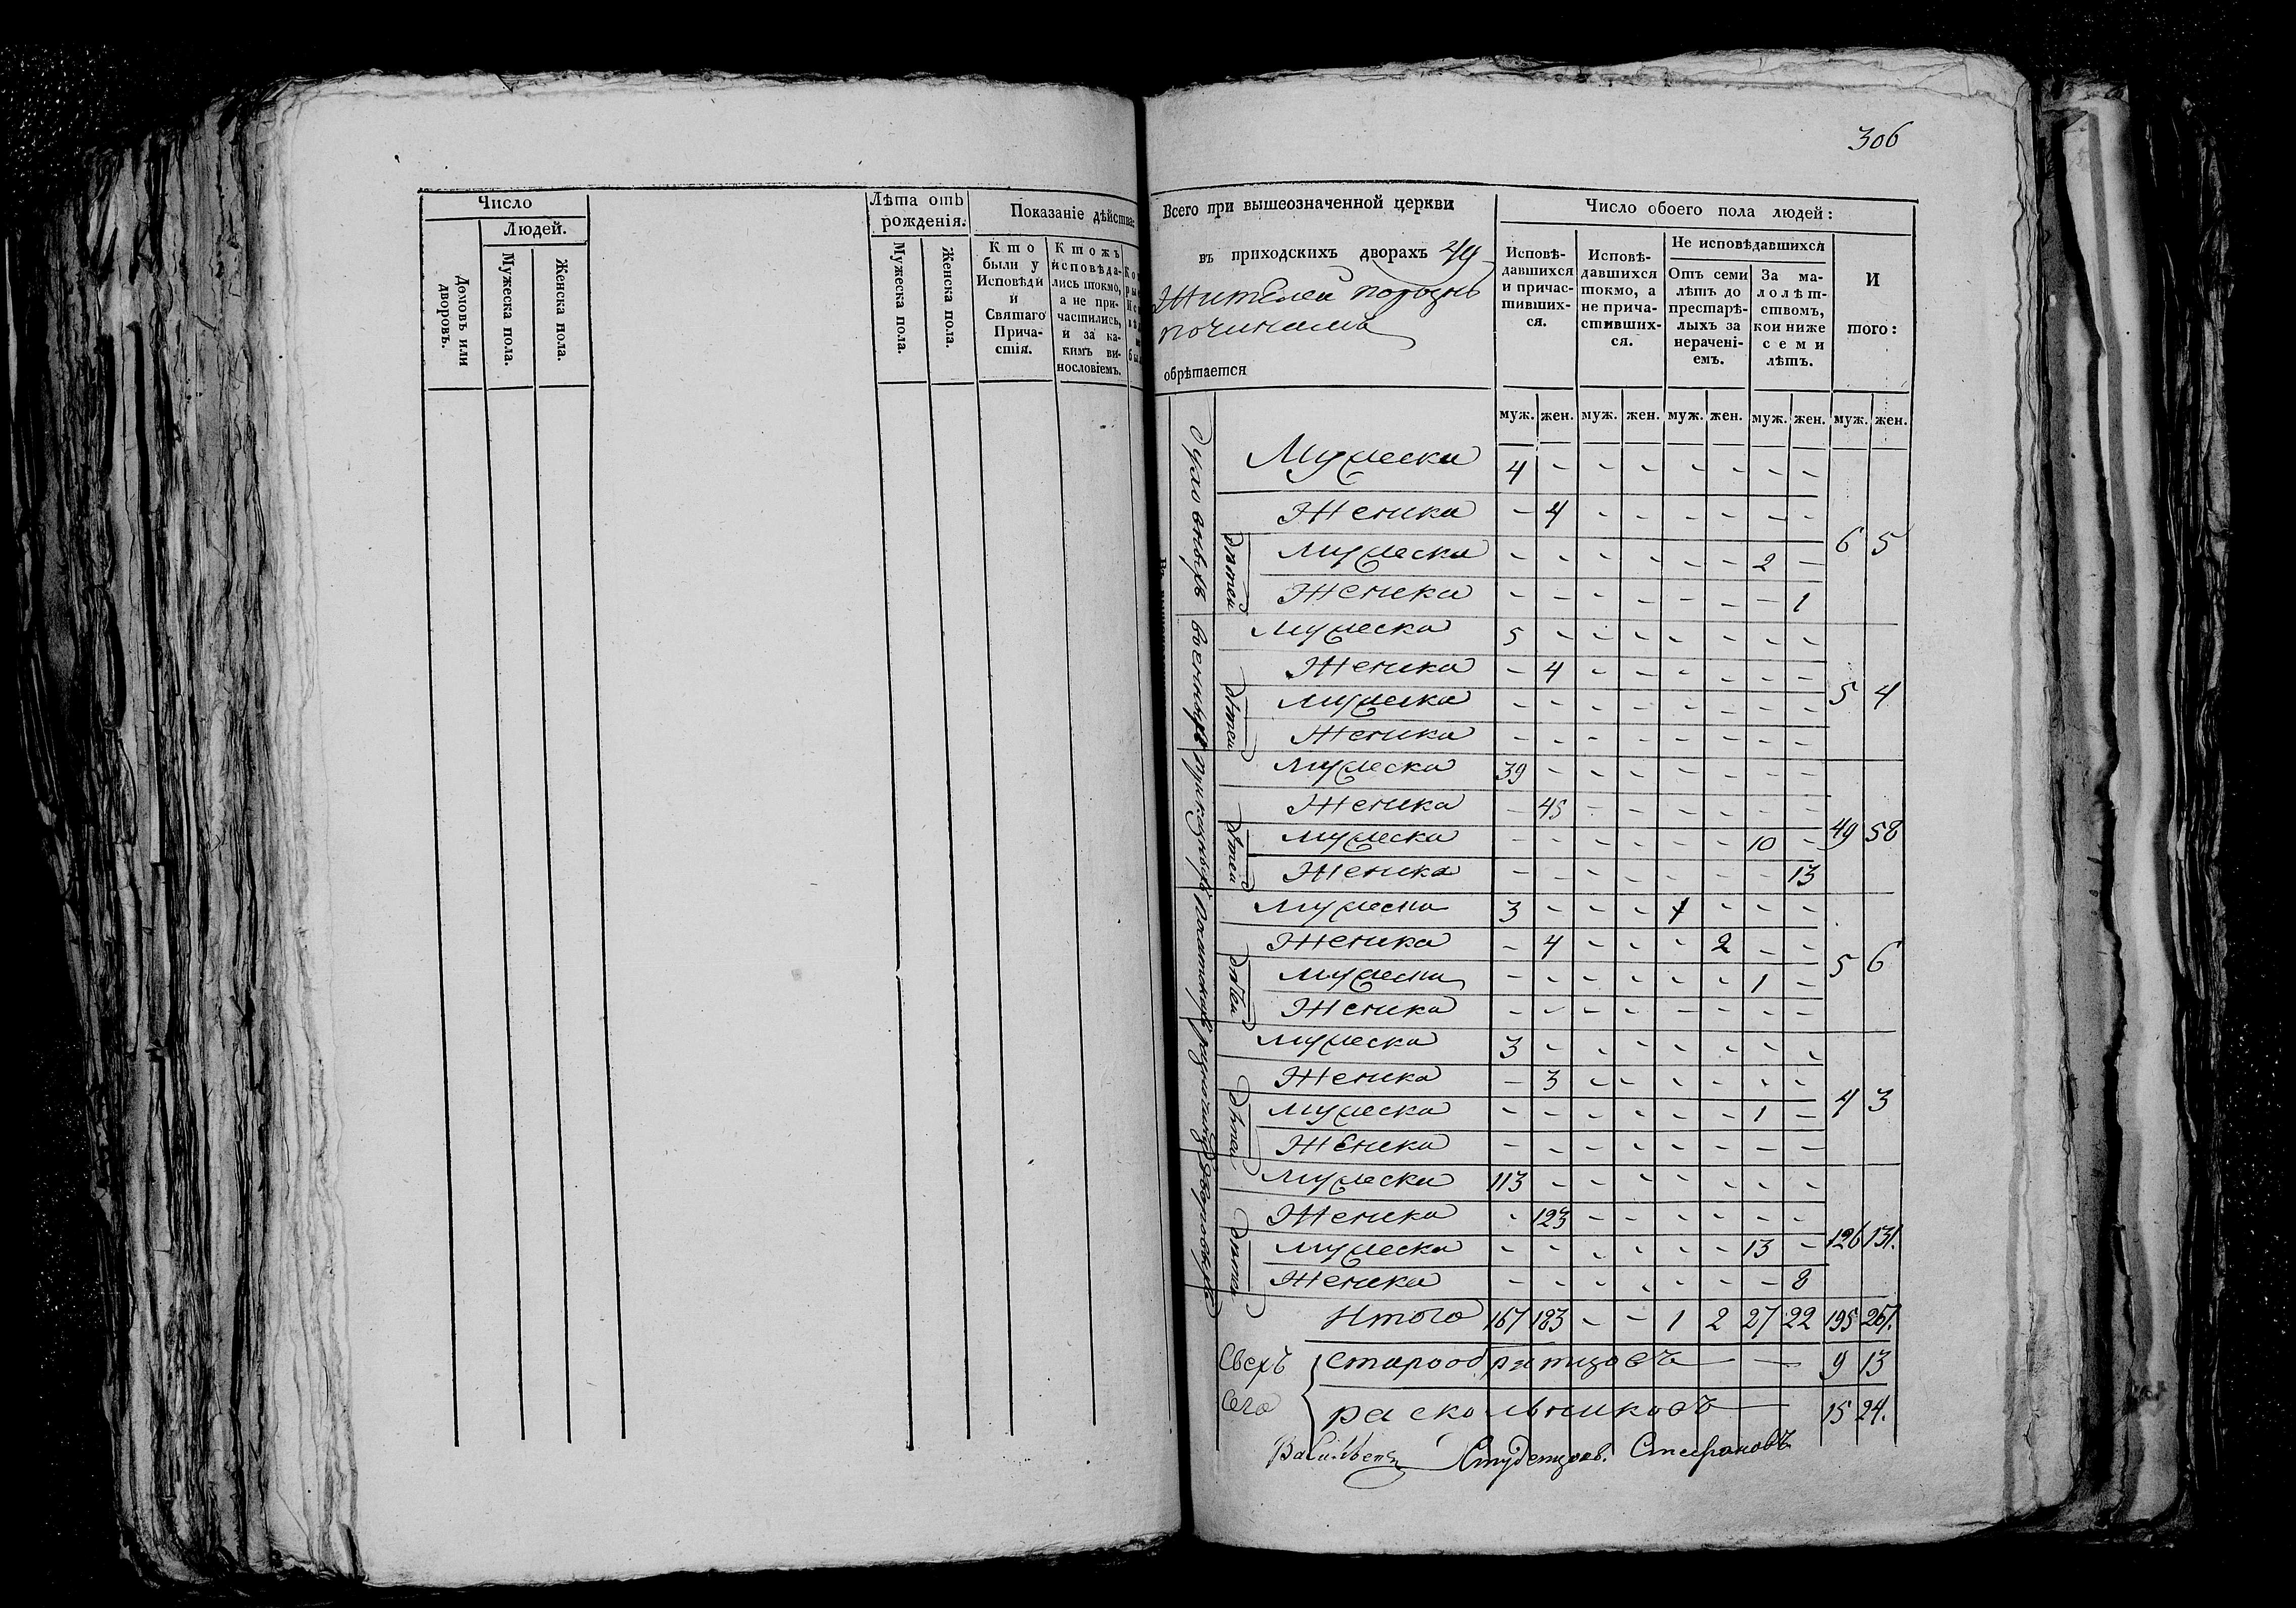 Число
Людей.
Домовъ или дворовъ.
Мужеска пола.
Женска пола.
Лѣта отъ рожденія.
Мужеска пола.
Женска пола.
Показаніе дѣйства:
Кто были у Исповѣди и Святаго Причастія.
Ктожъ исповѣдались токмо, а не причастились, и за какимъ винословіемъ.
306
Всего при вышеозначенной церкви
въ приходскихъ дворахъ 49
Жителей порознь
починамъ
обрѣтается
Число обоего пола людей:
Исповѣдавшихся и причастившихся.
Исповѣдавшихся токмо, а не причастившихся.
Не исповѣдавшихся
Отъ семи лѣтъ до престарѣлыхъ за нераченіемъ.
За малолѣтствомъ, кои ниже семи лѣтъ.
И того:
муж. жен. муж. жен. муж. жен. муж. жен. муж. жен.
Духовныхъ
Мужеска 4 - - - - - - -
Женска - 4 - - - - - - 6 5
дѣтей
Мужеска - - - - - - 2 -
Женска - - - - - - - 1
Военныхъ
Мужеска 5 - - - - - - -
Женска - 4 - - - - - - 5 4
дѣтей
Мужеска - - - - - - - -
Женска - - - - - - - -
Мужеска 39 - - - - - - -
Женска - 45 - - - - - - 49 58
дѣтей
Мужеска - - - - - - 10 -
Женска - - - - - - - 13
Мужеска 3 - - - 1 - - -
Женска - 4 - - - 2 - - 5 6
дѣтей
Мужеска - - - - - - 1 -
Женска - - - - - - - -
Мужеска 3 - - - - - - -
Женска - 3 - - - - - - 4 3
дѣтей
Мужеска - - - - - - 1 -
Женска - - - - - - - -
дворовыхъ
Мужеска 113 - - - - - - -
Женска - 123 - - - - - - 126 131.
дѣтей
Мужеска - - - - - - 13 -
Женска - - - - - - - 8
Итого 167 183 - - 1 2 27 22 195 267.
Сверхъ сего
старообрятцовъ — — 9 13
раскольниковъ — 15 24.
Студенцовъ. Стефановъ